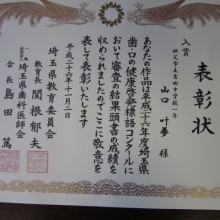 表彰状
入賞
秩父市立吉田中学校一年
山口 叶夢 様
あなたの作品は平成二十六年度埼玉県
歯・口の健康啓発標語コンクールに
おいて審査の結果頭書の成績を
収められましたのでここに敬意を
表して表彰いたします
平成二十六年十一月二日
埼玉県教育委員会
教育長 関根郁夫
埼玉県歯科医師会
会長 島田篤